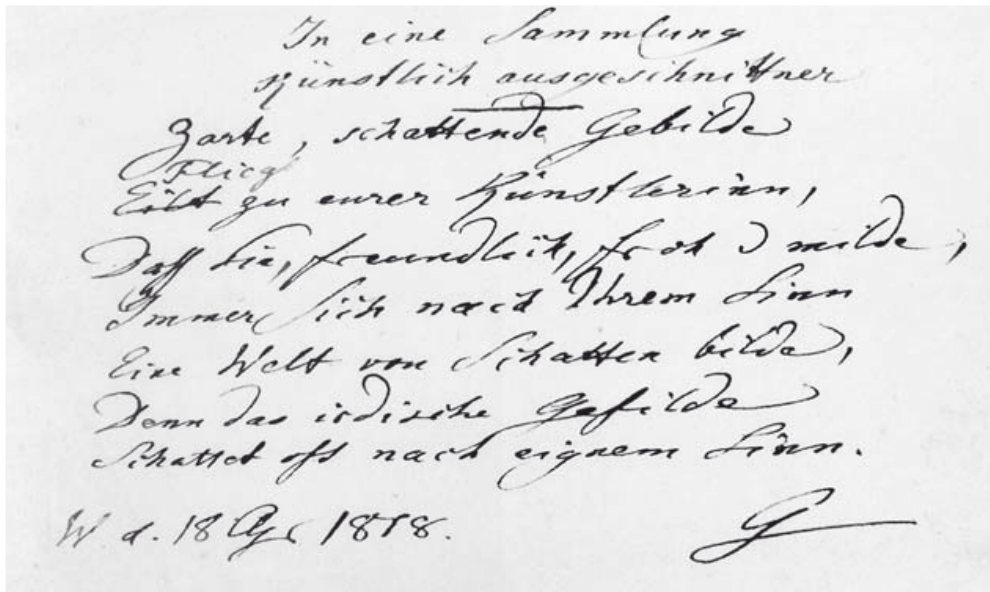 In eine Sammlung
künstlich ausgeschnittner
Zarte, schattende Gebilde
Fliegt
Eilt zu eurer Künstlerinn,
Daß Sie, freundlich, froh u milde,
Immer Sich nach Ihrem Sinn
Eine Welt von Schatten bilde,
Denn das irdische Gefilde
Schattet oft nach eignem Sinn.
W d. 18 1818.
G